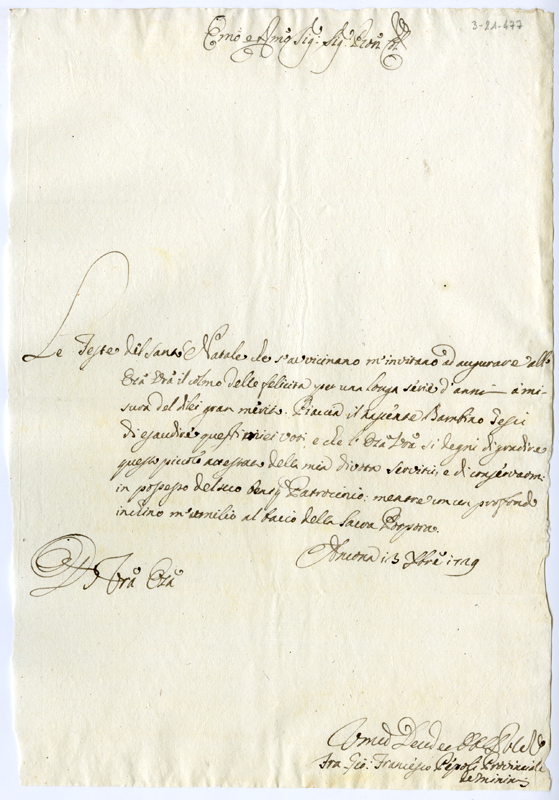 3-21-477
Emo e Rmo Sig: Sig: Pron
Le Feste del Santo Natale che s'avvicinano m'invitano ad augurare all'
Eza Vra il colmo delle felicità per una longa serie d'anni a mi-
sura del di lei gran merito. Piaccia il nascente Bambino Gesù
di esaudire questi miei voti, e che l'Eza Vra si degni di gradire
questo picciolo attestato della mia divota servitù, e di conservarmi
in possesso del suo Patrocinio; mentre con un profondo
inclino m'umilio al bacio della Sacra Porpora.
Ancona 13 Xbre 1729
Di Vra Eza
Fra Gio: Francesco Provinciale
de Minimi